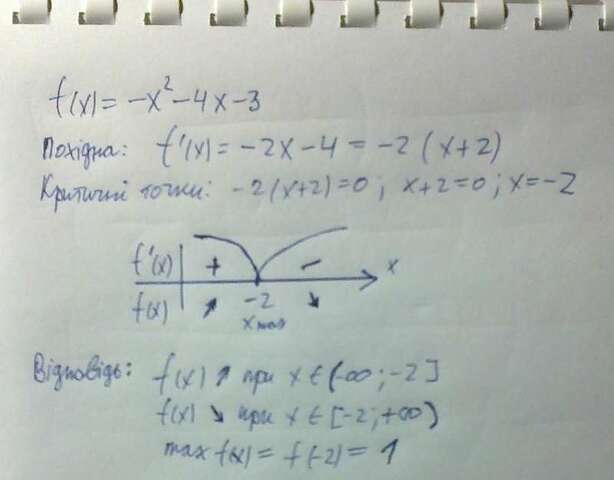 f(x) = -x² - 4x - 3
Похідна: f'(x) = -2x - 4 = -2(x+2)
Критичні точки: -2(x+2)=0; x+2=0; x=-2
f'(x) + - x
f(x) ↗ -2 ↘
xmax
Відповідь: f(x) ↗ при x ∈ (-∞; -2]
f(x) ↘ при x ∈ [-2; +∞)
max f(x) = f(-2) = 1